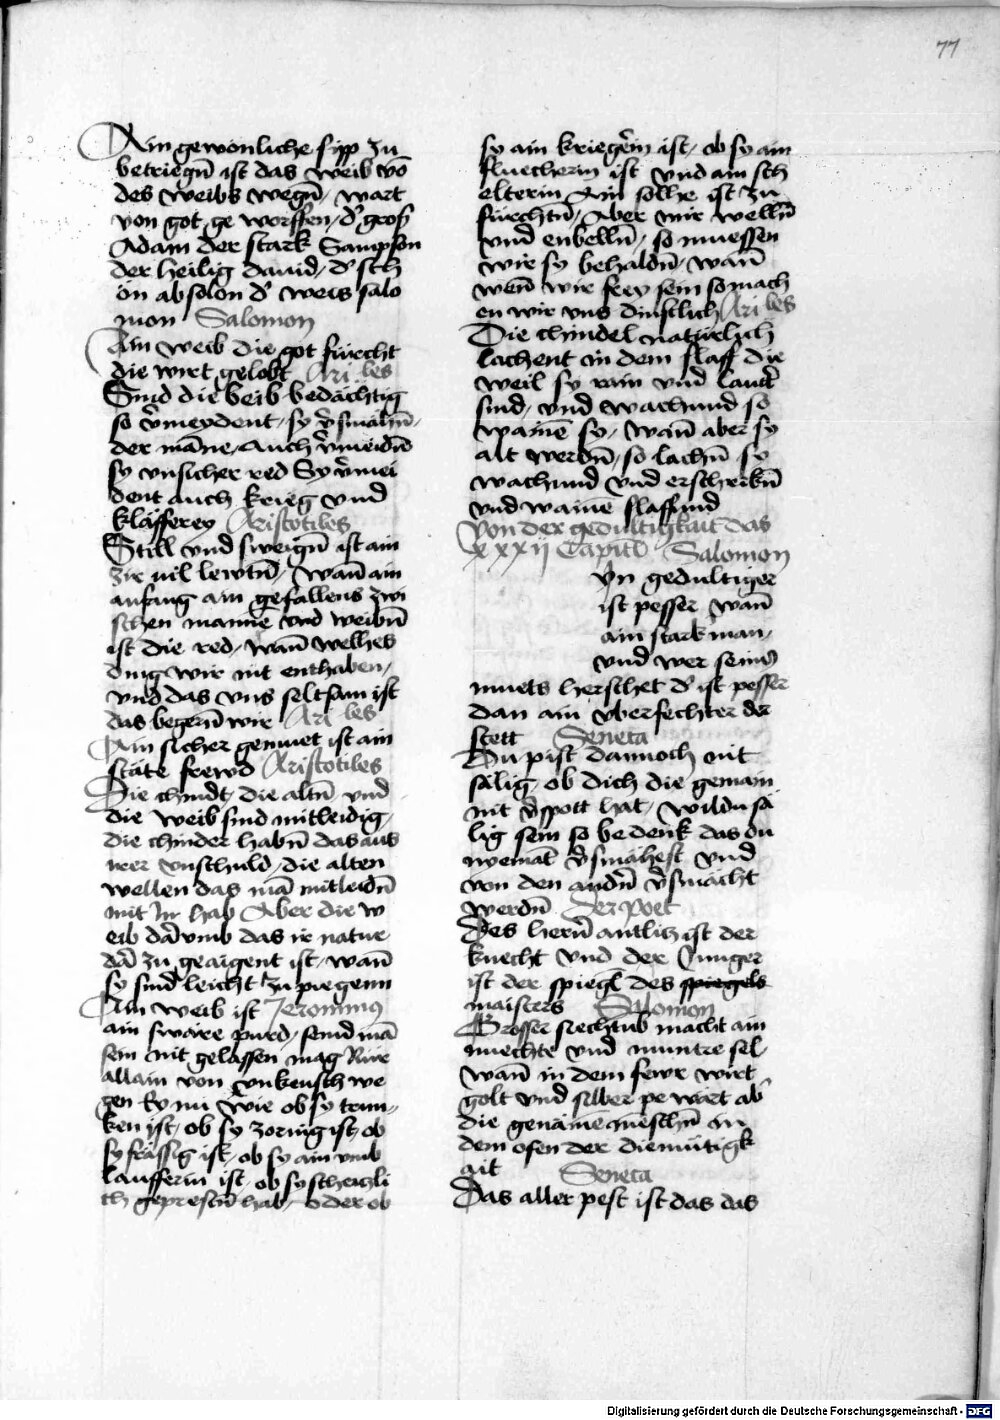 77
Ain gewonliche sipp zu
betriegñ ist das weib võ
des weibs wegñ / wart
von got ge worffen / d' gross
Adam der stark Sampson
der heilig dauid / d' sch
ön absolon d' weis salo
mon Salomon
Ain weib die got fürcht
die wirt gelobt Ari les
Sind die beib bedächtig
so v'meydent / sy v'smähñ
der mãne / Auch v'meidñd
sy vnsicher red Sy v'mei
dent auch krieg vnd
kläfferey Aristotiles
Still vnd sweigñ ist ain
zir uil lewtñ / wañ ain
anfang ain gefallens zwi
schen manne vnd weibñ
ist die red / wañ welhes
ding wir nit enthaben /
vnd das vns seltsam ist
das begerñ wir Ari les
Ain sicher gemuet ist ain
stäte frewd Aristotiles
Die chindt / die altñ vnd
die weib sind mitleidig /
die chinder habñ das aus
irer vnschuld / die alten
wellen das mã mitleidñ
mit Jn hab Aber die w
eib dar vmb das ir natur
dar zu geaigent ist / wañ
sy sind leicht zu piegenn
Ain weib ist Jeronimus
ain sware purd / seind mã
sein nit gelassen mag Nur
allain von vnkeusch we
gen
ken ist / ob sy zornig ist / ob
sy frässig ist / ob sy ain vmb
laufferin ist / ob sy scheuzli
ch geprestñ hab / oder ob
sy ain kriegerin ist / ob sy ain
fluecherin ist vnd ain sch
elterin Ain sollhe ist zu
fürchtñ / Aber wir wellñ
vnd enbellñ / so muessen
wir sy behaldñ / wañ
weñ wir frey sein so mach
en wir vns dinstlich Ari les
Die chindel natürlich
lachent in dem slaff die
weil sy rain vnd lautter
sind / vnd wachund so
wainẽ sy / wañ aber sy
alt werdñ / so lachñ sy
wachund vnd erscherkñ
vnd wainẽ slaffund
Von der gedultigkait das
xxxij Capitl Salomon
Yn gedultiger
ist pesser wañ
ain stark man /
vnd wer seins
muets herschet d' ist pesser
dan ain vberfechter der
stett Seneca
Du pist dannoch nit
sälig / ob dich die gemain
nit v'spott hat / wildu sä
lig sein so bedenk das du
nyemãt v'smähest vnd
von den andñ v'smächt
werdñ Der poet
Des herñ antlitz ist der
knecht vnd der Junger
ist der spiegl des spiegels
maisters Salomon
Grosser siechtub macht ain
nuechte vnd muntre sel /
wañ in dem fewr wirt
golt vnd silber pewärt ab
die genämẽ menschñ in
dem ofen der diemütigk
ait Seneca
Das aller pest ist das das
Digitalisierung gefördert durch die Deutsche Forschungsgemeinschaft - DFG